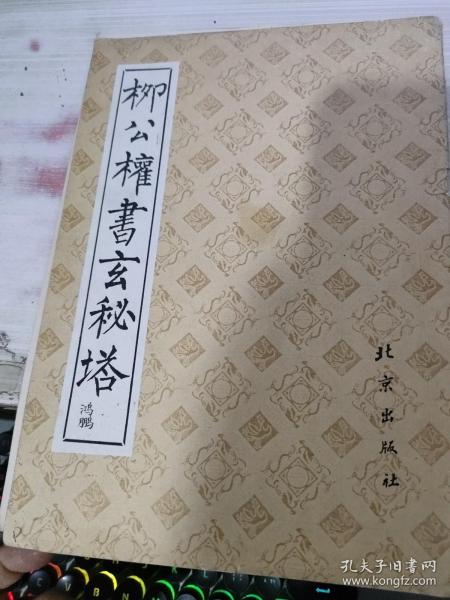 柳公權書玄秘塔
鸿鹏
北京出版社
孔夫子旧书网
www.kongfz.com